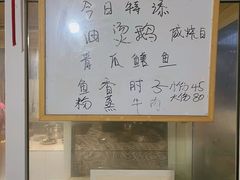 今日特添
油烫鹅 咸烧白
黄瓜鳝鱼
鱼香肘子 小份45
粉蒸牛肉 大份80